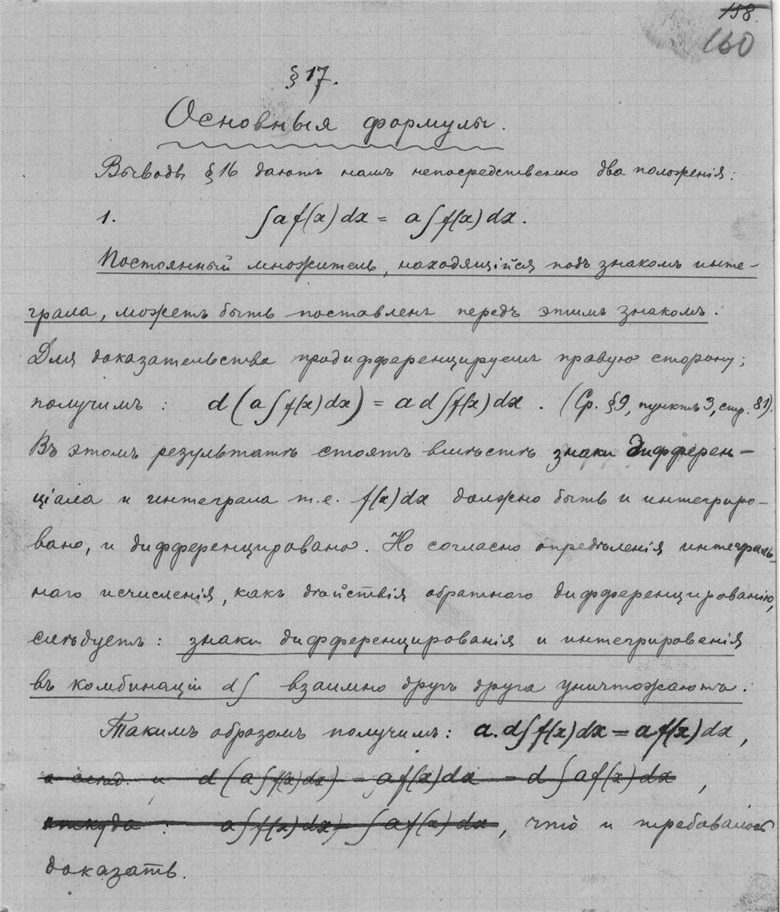 158.
160
§ 17.
Основныя формулы.
Выводы § 16 даютъ намъ непосредственно два положенія:
1. ∫af(x)dx = a∫f(x)dx.
Постоянный множитель, находящійся подъ знакомъ инте-
грала, можетъ быть поставленъ передъ этимъ знакомъ.
Для доказательства продифференцируемъ правую сторону;
получимъ: d(a∫f(x)dx) = ad∫f(x)dx. (Ср. §9, пунктъ 3, стр. 81).
Въ этомъ результатѣ стоятъ вмѣстѣ знаки дифферен-
ціала и интеграла т.е. f(x)dx должно быть и интегриро-
вано, и дифференцировано. Но согласно опредѣленія интеграль-
наго исчисленія, какъ дѣйствія обратнаго дифференцированію,
слѣдуетъ: знаки дифференцированія и интегрированія
въ комбинаціи d∫ взаимно другъ друга уничтожаютъ.
Такимъ образомъ получимъ: a.d∫f(x)dx = af(x)dx,
а слѣд. и d(a∫f(x)dx) = af(x)dx = d∫af(x)dx,
откуда: a∫f(x)dx = ∫af(x)dx, что и требовалось
доказать.